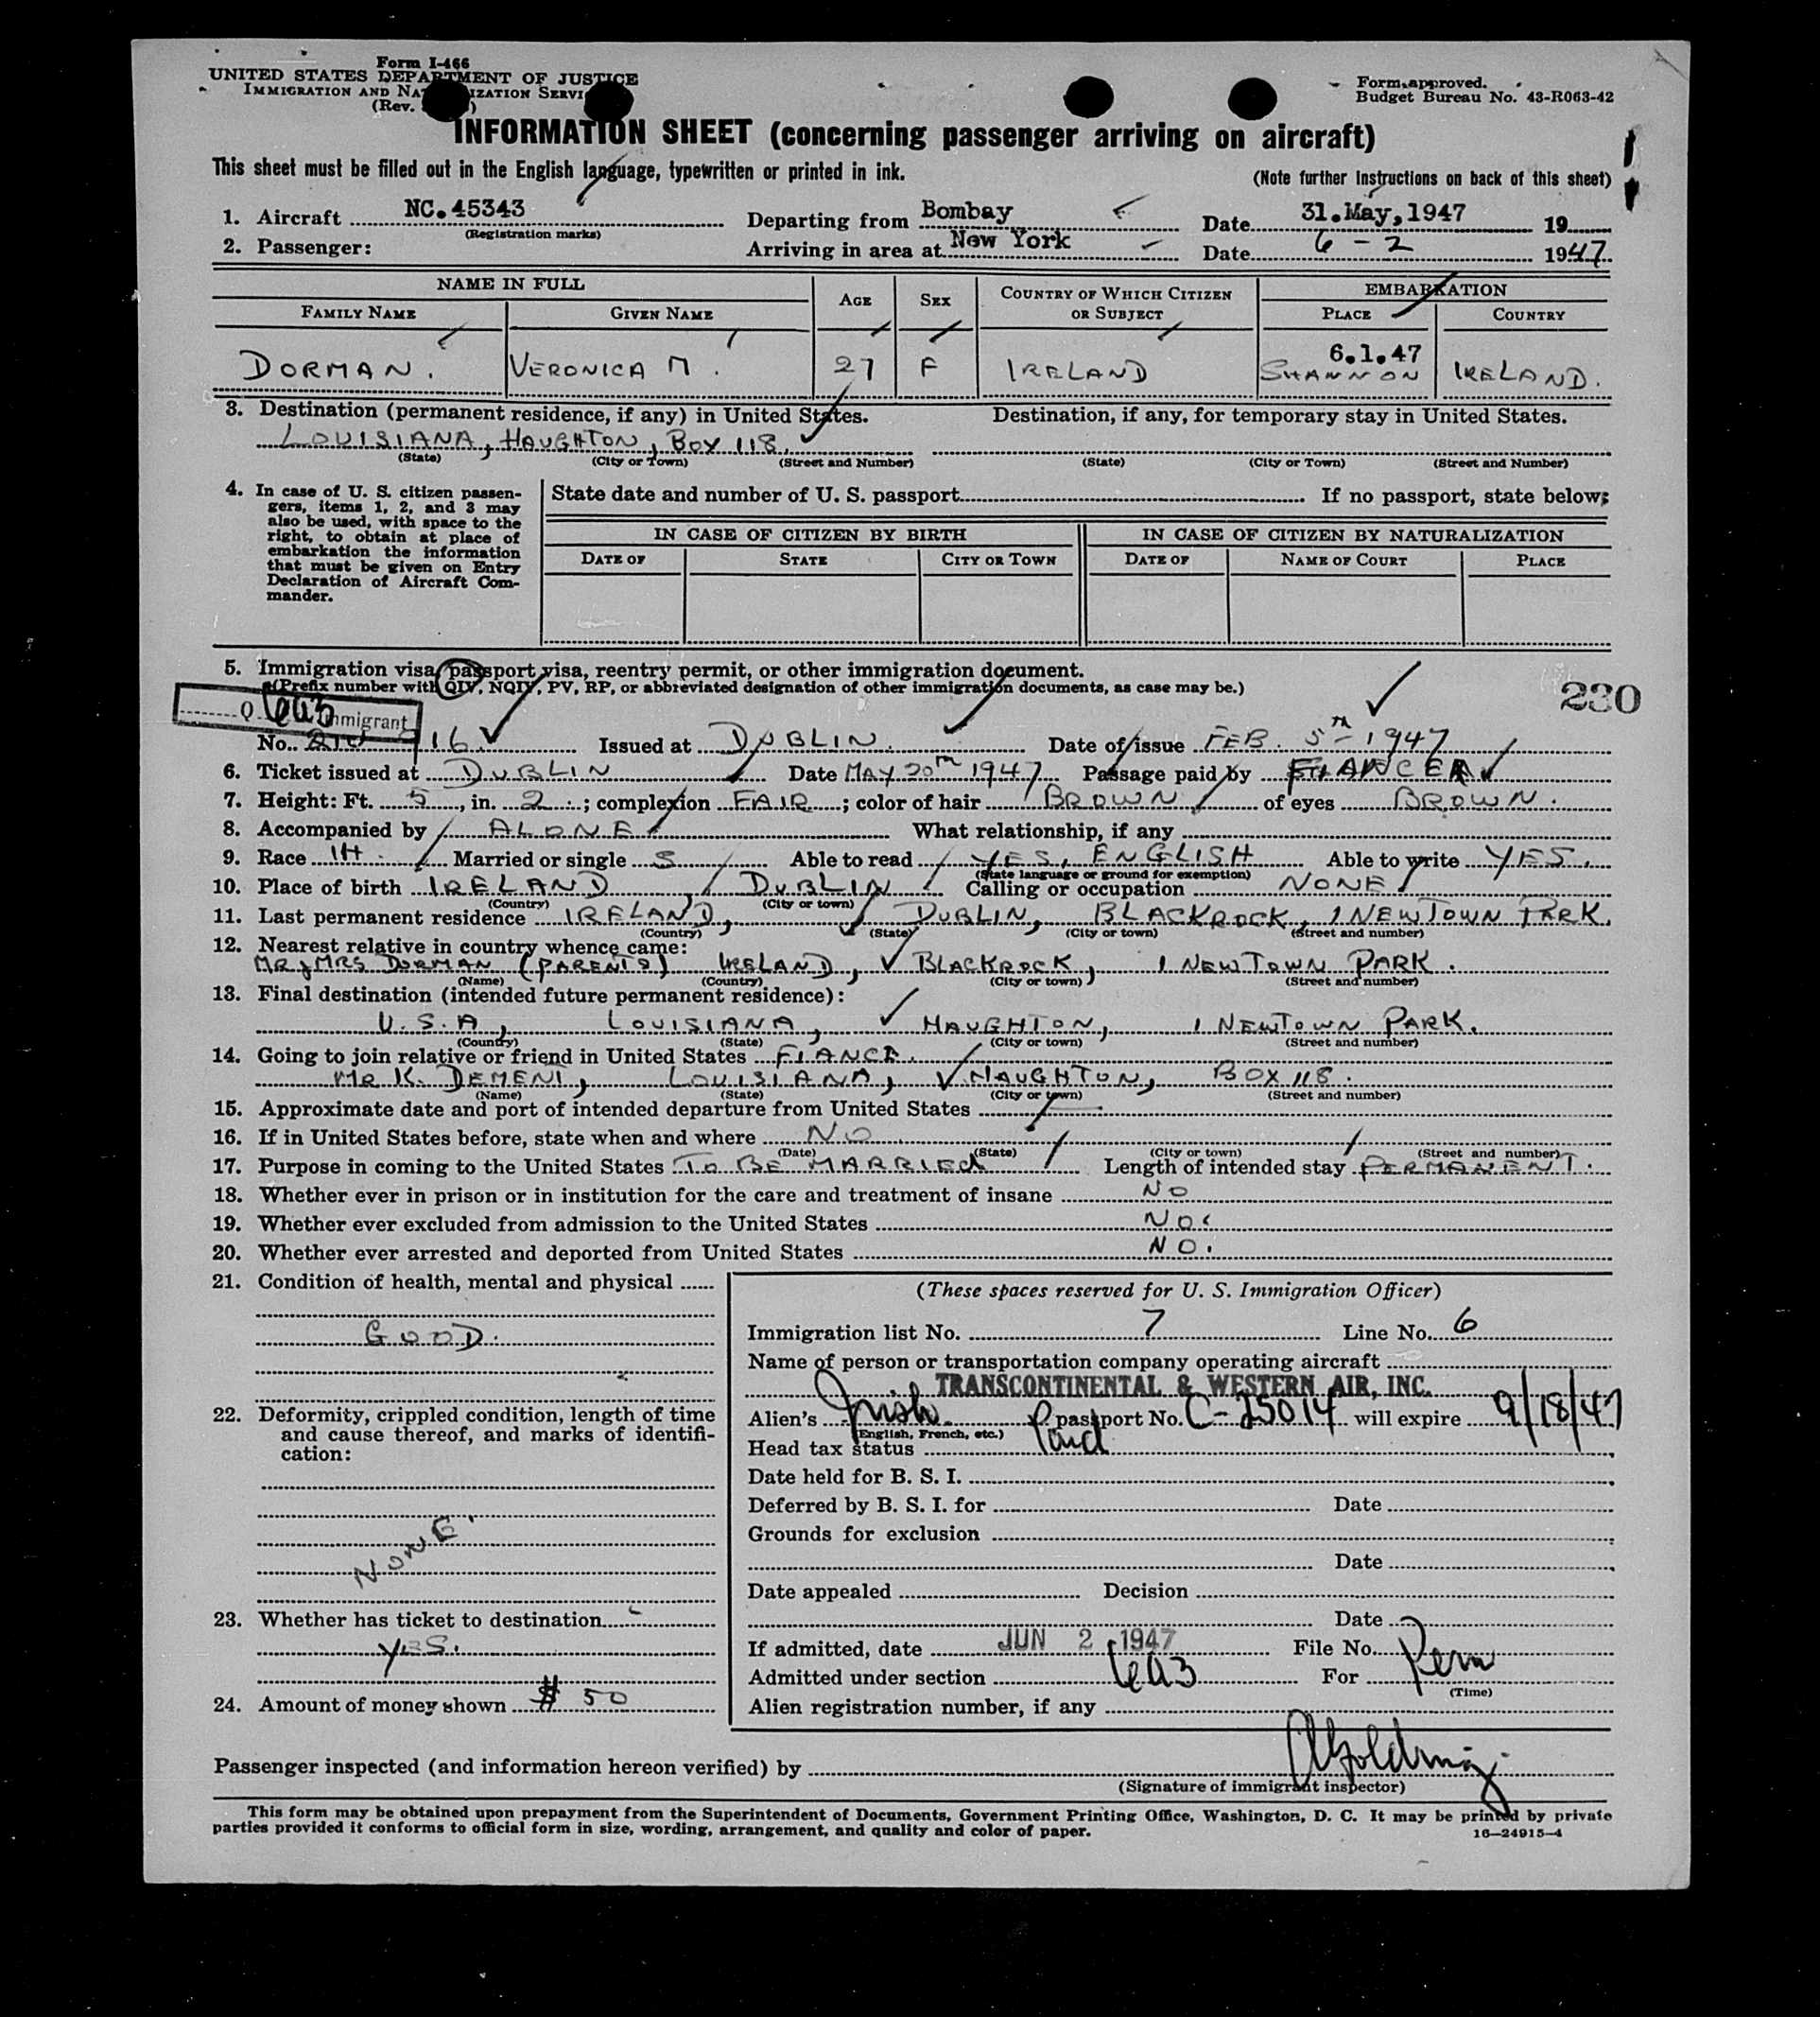 Form I-466
UNITED STATES DEPARTMENT OF JUSTICE
IMMIGRATION AND NATURALIZATION SERVICE
(Rev. )
Form approved.
Budget Bureau No. 43-R063-42
INFORMATION SHEET (concerning passenger arriving on aircraft)
This sheet must be filled out in the English language, typewritten or printed in ink.
(Note further instructions on back of this sheet)
1. Aircraft NC.45343 Departing from Bombay Date 31.May,1947 19
(Registration marks)
2. Passenger: Arriving in area at New York Date 6-2 1947
NAME IN FULL AGE SEX COUNTRY OF WHICH CITIZEN OR SUBJECT EMBARKATION
FAMILY NAME GIVEN NAME PLACE COUNTRY
6.1.47
DORMAN. VERONICA M. 27 F IRELAND SHANNON IRELAND.
3. Destination (permanent residence, if any) in United States. Destination, if any, for temporary stay in United States.
LOUISIANA, HAUGHTON, BOX 118.
(State) (City or Town) (Street and Number) (State) (City or Town) (Street and Number)
4. In case of U. S. citizen passengers, items 1, 2, and 3 may also be used, with space to the right, to obtain at place of embarkation the information that must be given on Entry Declaration of Aircraft Commander.
State date and number of U. S. passport If no passport, state below:
IN CASE OF CITIZEN BY BIRTH IN CASE OF CITIZEN BY NATURALIZATION
DATE OF STATE CITY OR TOWN DATE OF NAME OF COURT PLACE
5. Immigration visa, passport visa, reentry permit, or other immigration document.
(Prefix number with QIV, NQIV, PV, RP, or abbreviated designation of other immigration documents, as case may be.)
230
Q 6a3 Immigrant
No. 916 Issued at DUBLIN. Date of issue FEB. 5TH 1947
6. Ticket issued at DUBLIN Date MAY 20TH 1947 Passage paid by FIANCE
7. Height: Ft. 5, in. 2.; complexion FAIR; color of hair BROWN of eyes BROWN.
8. Accompanied by ALONE What relationship, if any
9. Race IH. Married or single S Able to read YES, ENGLISH Able to write YES.
(State language or ground for exemption)
10. Place of birth IRELAND, DUBLIN Calling or occupation NONE
(Country) (City or town)
11. Last permanent residence IRELAND, DUBLIN, BLACKROCK, 1 NEWTOWN PARK.
(Country) (State) (City or town) (Street and number)
12. Nearest relative in country whence came:
MR & MRS DORMAN (PARENTS) IRELAND, BLACKROCK, 1 NEWTOWN PARK.
(Name) (Country) (City or town) (Street and number)
13. Final destination (intended future permanent residence):
U.S.A, LOUISIANA, HAUGHTON, 1 NEWTOWN PARK.
(Country) (State) (City or town) (Street and number)
14. Going to join relative or friend in United States FIANCE.
MR K. DEMENT, LOUISIANA, HAUGHTON, BOX 118.
(Name) (State) (City or town) (Street and number)
15. Approximate date and port of intended departure from United States
16. If in United States before, state when and where NO
(Date) (State) (City or town) (Street and number)
17. Purpose in coming to the United States TO BE MARRIED Length of intended stay PERMANENT.
18. Whether ever in prison or in institution for the care and treatment of insane NO
19. Whether ever excluded from admission to the United States NO.
20. Whether ever arrested and deported from United States NO.
21. Condition of health, mental and physical
GOOD.
22. Deformity, crippled condition, length of time and cause thereof, and marks of identification:
NONE.
23. Whether has ticket to destination
YES.
24. Amount of money shown $ 50
(These spaces reserved for U. S. Immigration Officer)
Immigration list No. 7 Line No. 6
Name of person or transportation company operating aircraft
TRANSCONTINENTAL & WESTERN AIR, INC.
Alien's Irish passport No. C-25014 will expire 9/18/47
(English, French, etc.)
Head tax status Paid
Date held for B. S. I.
Deferred by B. S. I. for Date
Grounds for exclusion
Date
Date appealed Decision
Date
If admitted, date JUN 2 1947 File No.
Admitted under section 6a3 For Perm
(Time)
Alien registration number, if any
Passenger inspected (and information hereon verified) by
(Signature of immigrant inspector)
This form may be obtained upon prepayment from the Superintendent of Documents, Government Printing Office, Washington, D. C. It may be printed by private
parties provided it conforms to official form in size, wording, arrangement, and quality and color of paper.
16—24915-4